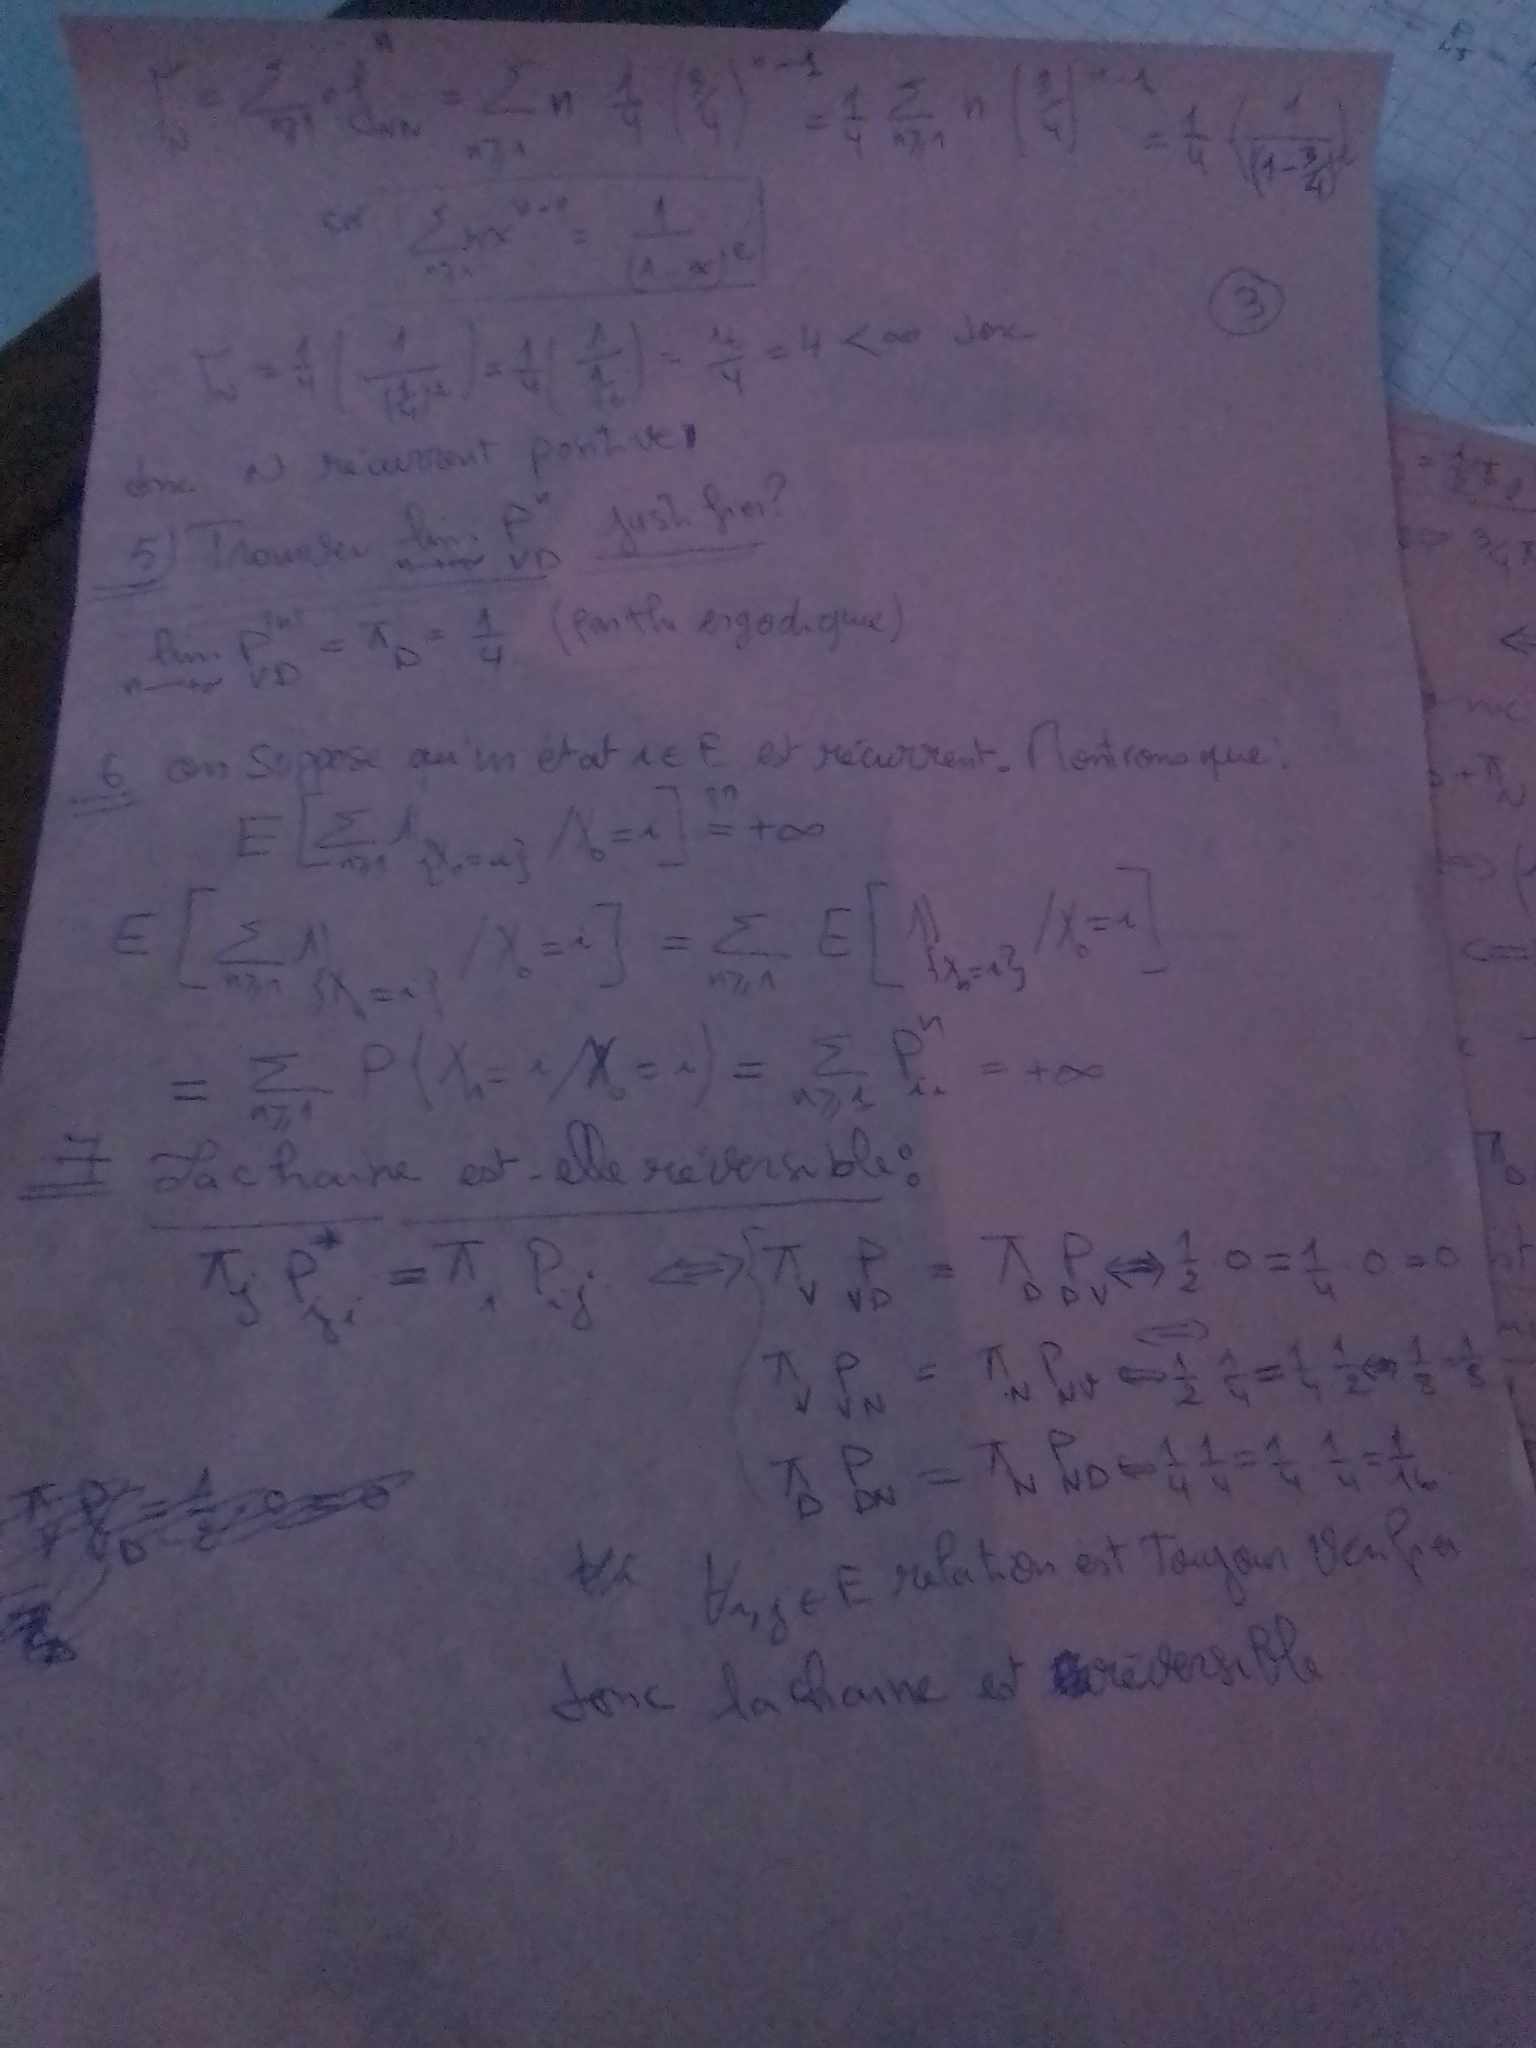 T_N = Σ_{n≥1} n f^n_{NN} = Σ_{n≥1} n 1/4 (3/4)^{n-1} = 1/4 Σ_{n≥1} n (3/4)^{n-1} = 1/4 (1/(1-3/4)^2)
Σ_{n≥1} n x^{n-1} = 1/(1-x)^2
3
T_N = 1/4 (1/(1/4)^2) = 1/4 (1/(1/16)) = 16/4 = 4 < ∞ donc
donc N récurrent positive
5) Trouver lim_{n→∞} P^n_{VD} justifier?
lim_{n→∞} P^{(n)}_{VD} = π_D = 1/4 (par th ergodique)
6 on suppose qu'un état i ∈ E est récurrent. Montrons que:
E[Σ_{n≥1} 1_{{X_n=i}} / X_0=i] = +∞
E[Σ_{n≥1} 1_{{X_n=i}} / X_0=i] = Σ_{n≥1} E[1_{{X_n=i}} / X_0=i]
= Σ_{n≥1} P(X_n=i / X_0=i) = Σ_{n≥1} P^n_{ii} = +∞
7 La chaine est-elle réversible:
π_j P^*_{ji} = π_i P_{ij} ⟺ { π_V P_{VD} = π_D P_{DV} ⟺ 1/2 . 0 = 1/4 . 0 = 0
π_V P_{VN} = π_N P_{NV} ⟺ 1/2 1/4 = 1/4 1/2 ⟺ 1/8 = 1/8
π_D P_{DN} = π_N P_{ND} ⟺ 1/4 1/4 = 1/4 . 1/4 = 1/16
∀i,j ∈ E relation est Toujour Verifier
donc la chaine est réversible